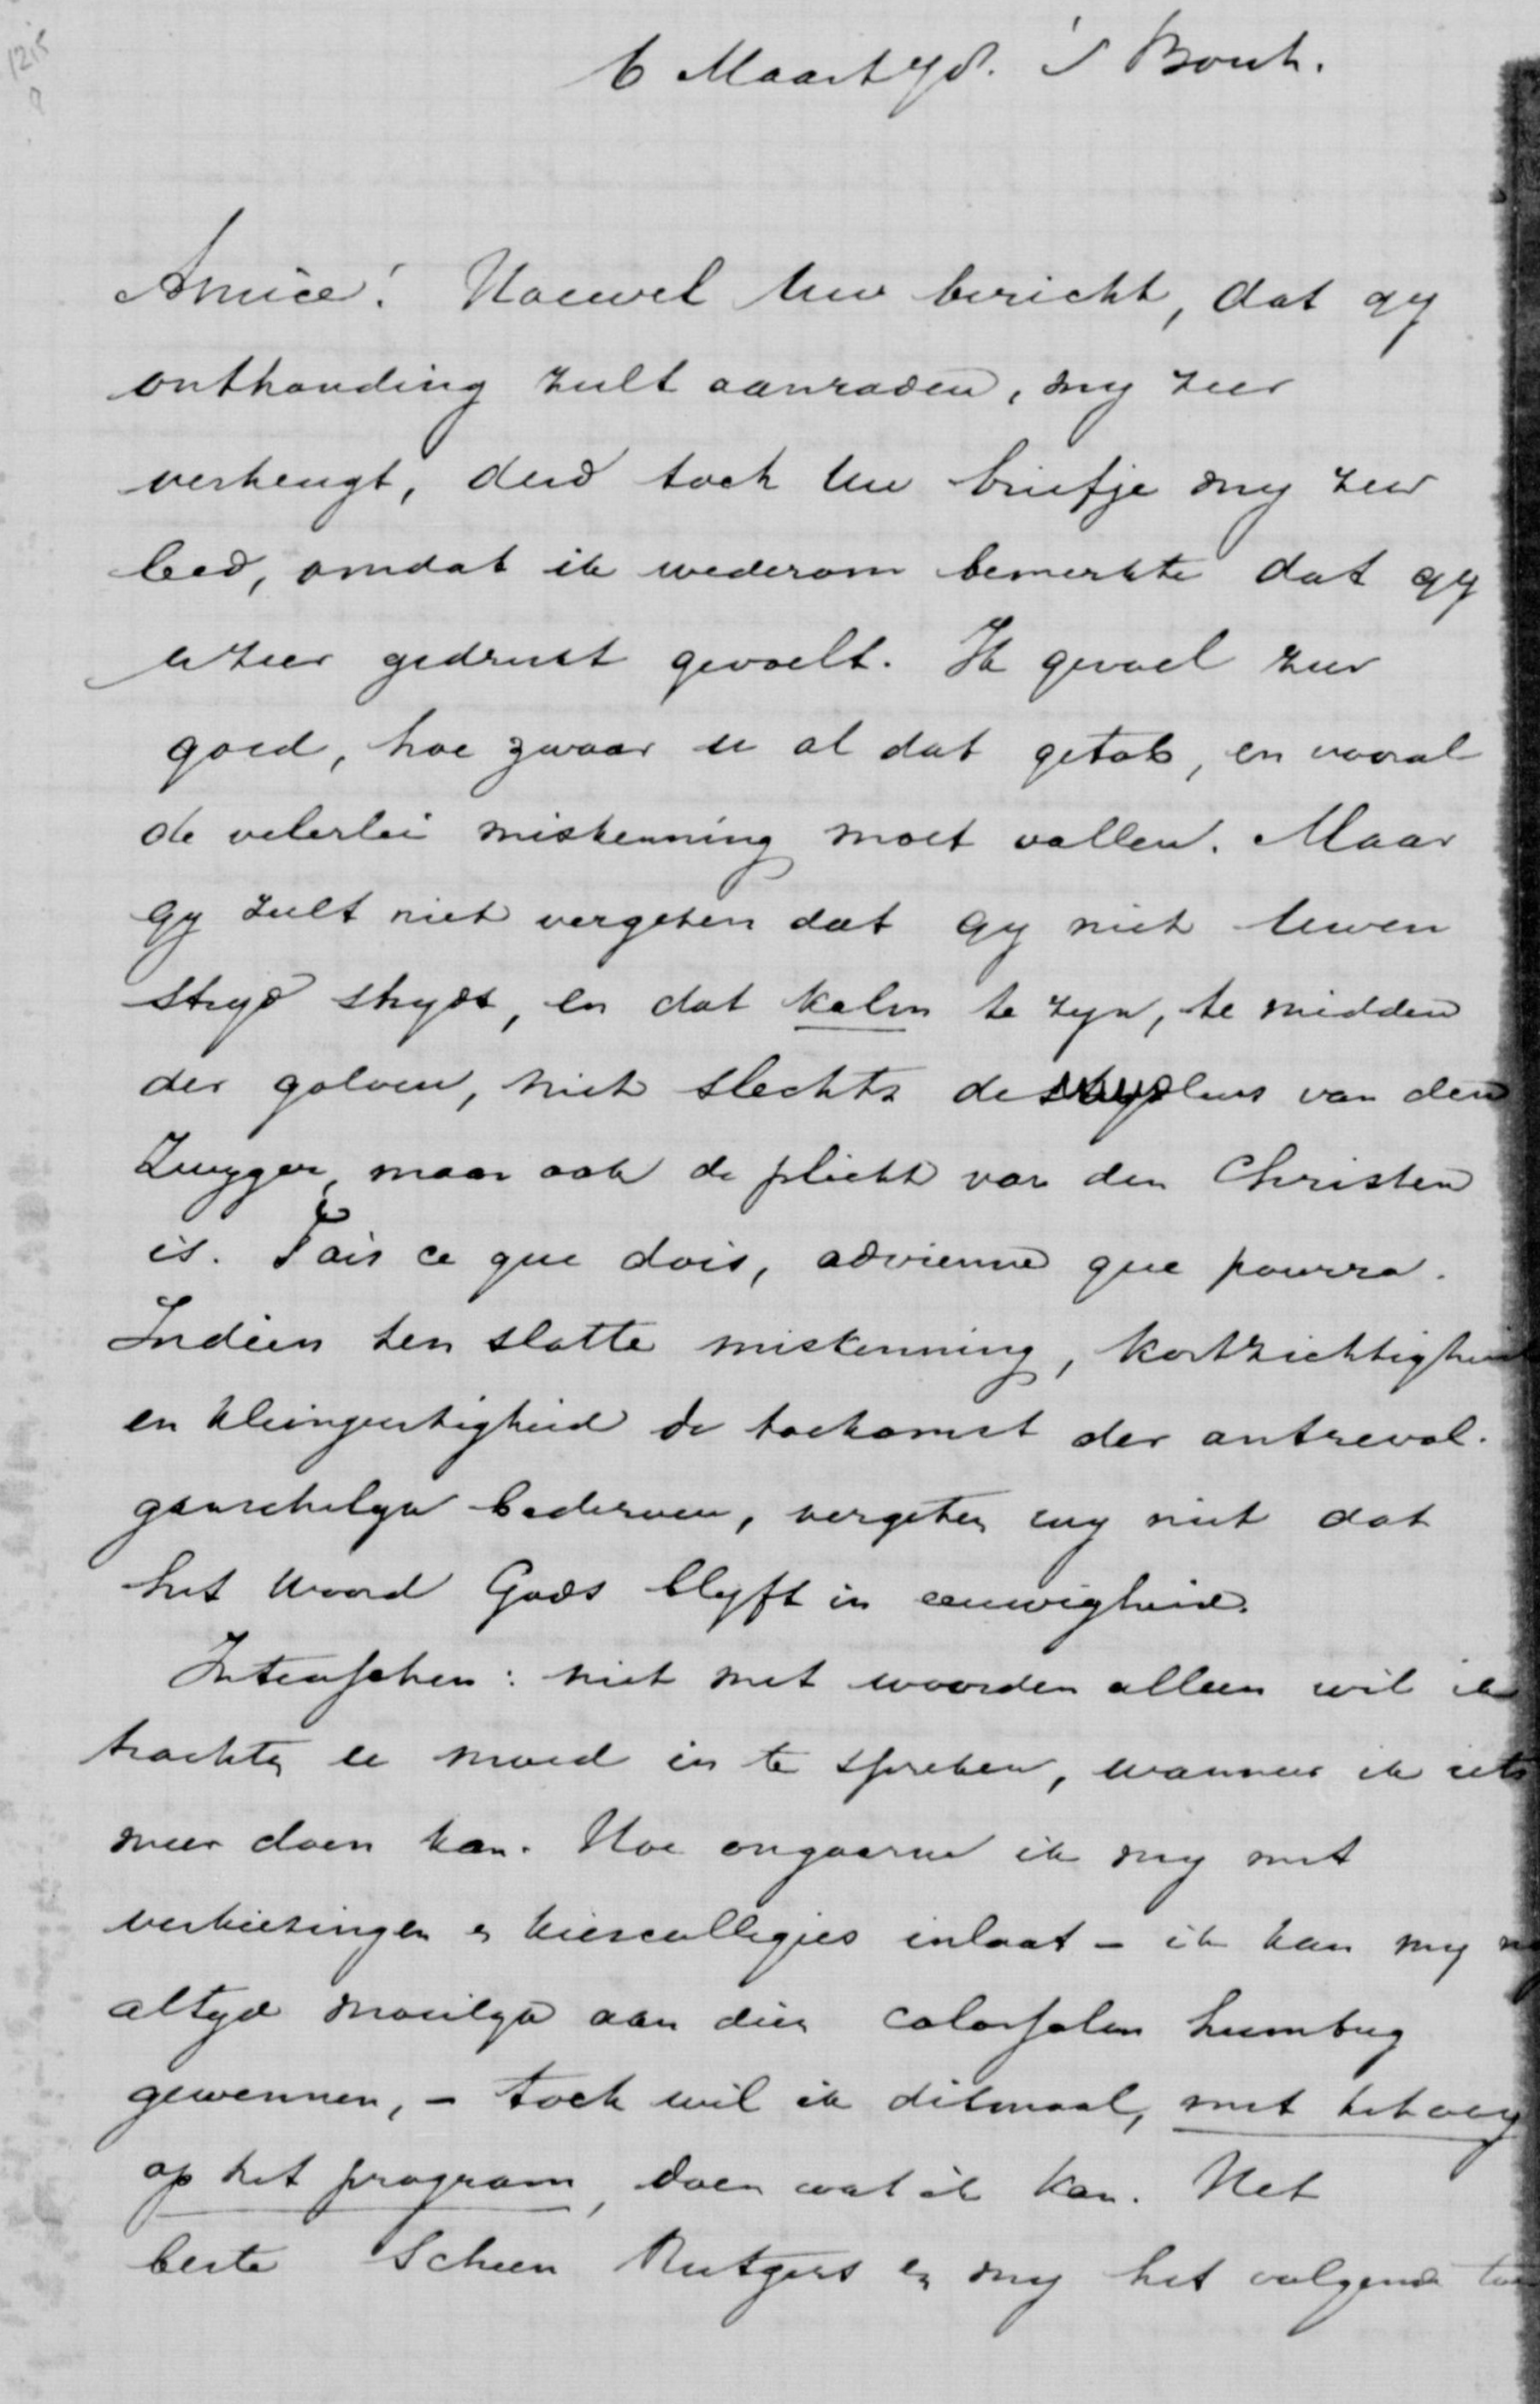 6 Maart 78. 's Bosch.
Amice! Hoewel Uw bericht, dat gy
onthouding zult aanraden, my zeer
verheugt, deed toch Uw briefje my zeer
leed, omdat ik wederom bemerkte dat gy
u zeer gedrukt gevoelt. Ik gevoel zeer
goed, hoe zwaar u al dat getob, en vooral
de velerlei miskenning moet vallen. Maar
gy zult niet vergeten dat gy niet Uwen
stryd strydt, en dat kalm te zyn, te midden
der golven, niet slechts de van den
Zwyger, maar ook de plicht van den Christen
is. Fais ce que dois, advienne que pourra.
Indien ten slotte miskenning, kortzichtigheid
en kleingeestigheid de toekomst der antirevol.
ganschelyk bederven, vergeten wy niet dat
het Woord Gods blyft in eeuwigheid.
Intusschen: niet met woorden alleen wil ik
trachten u moed in te spreken, wanneer ik iets
meer doen kan. Hoe ongaarne ik my met
verkiezingen en kiescollegies inlaat - ik kan my
altyd moeilyk aan dien colossalen humbug
gewennen, - toch wil ik ditmaal, met het oog
op het program, doen wat ik kan. Het
beste scheen Rutgers en my het volgende toe